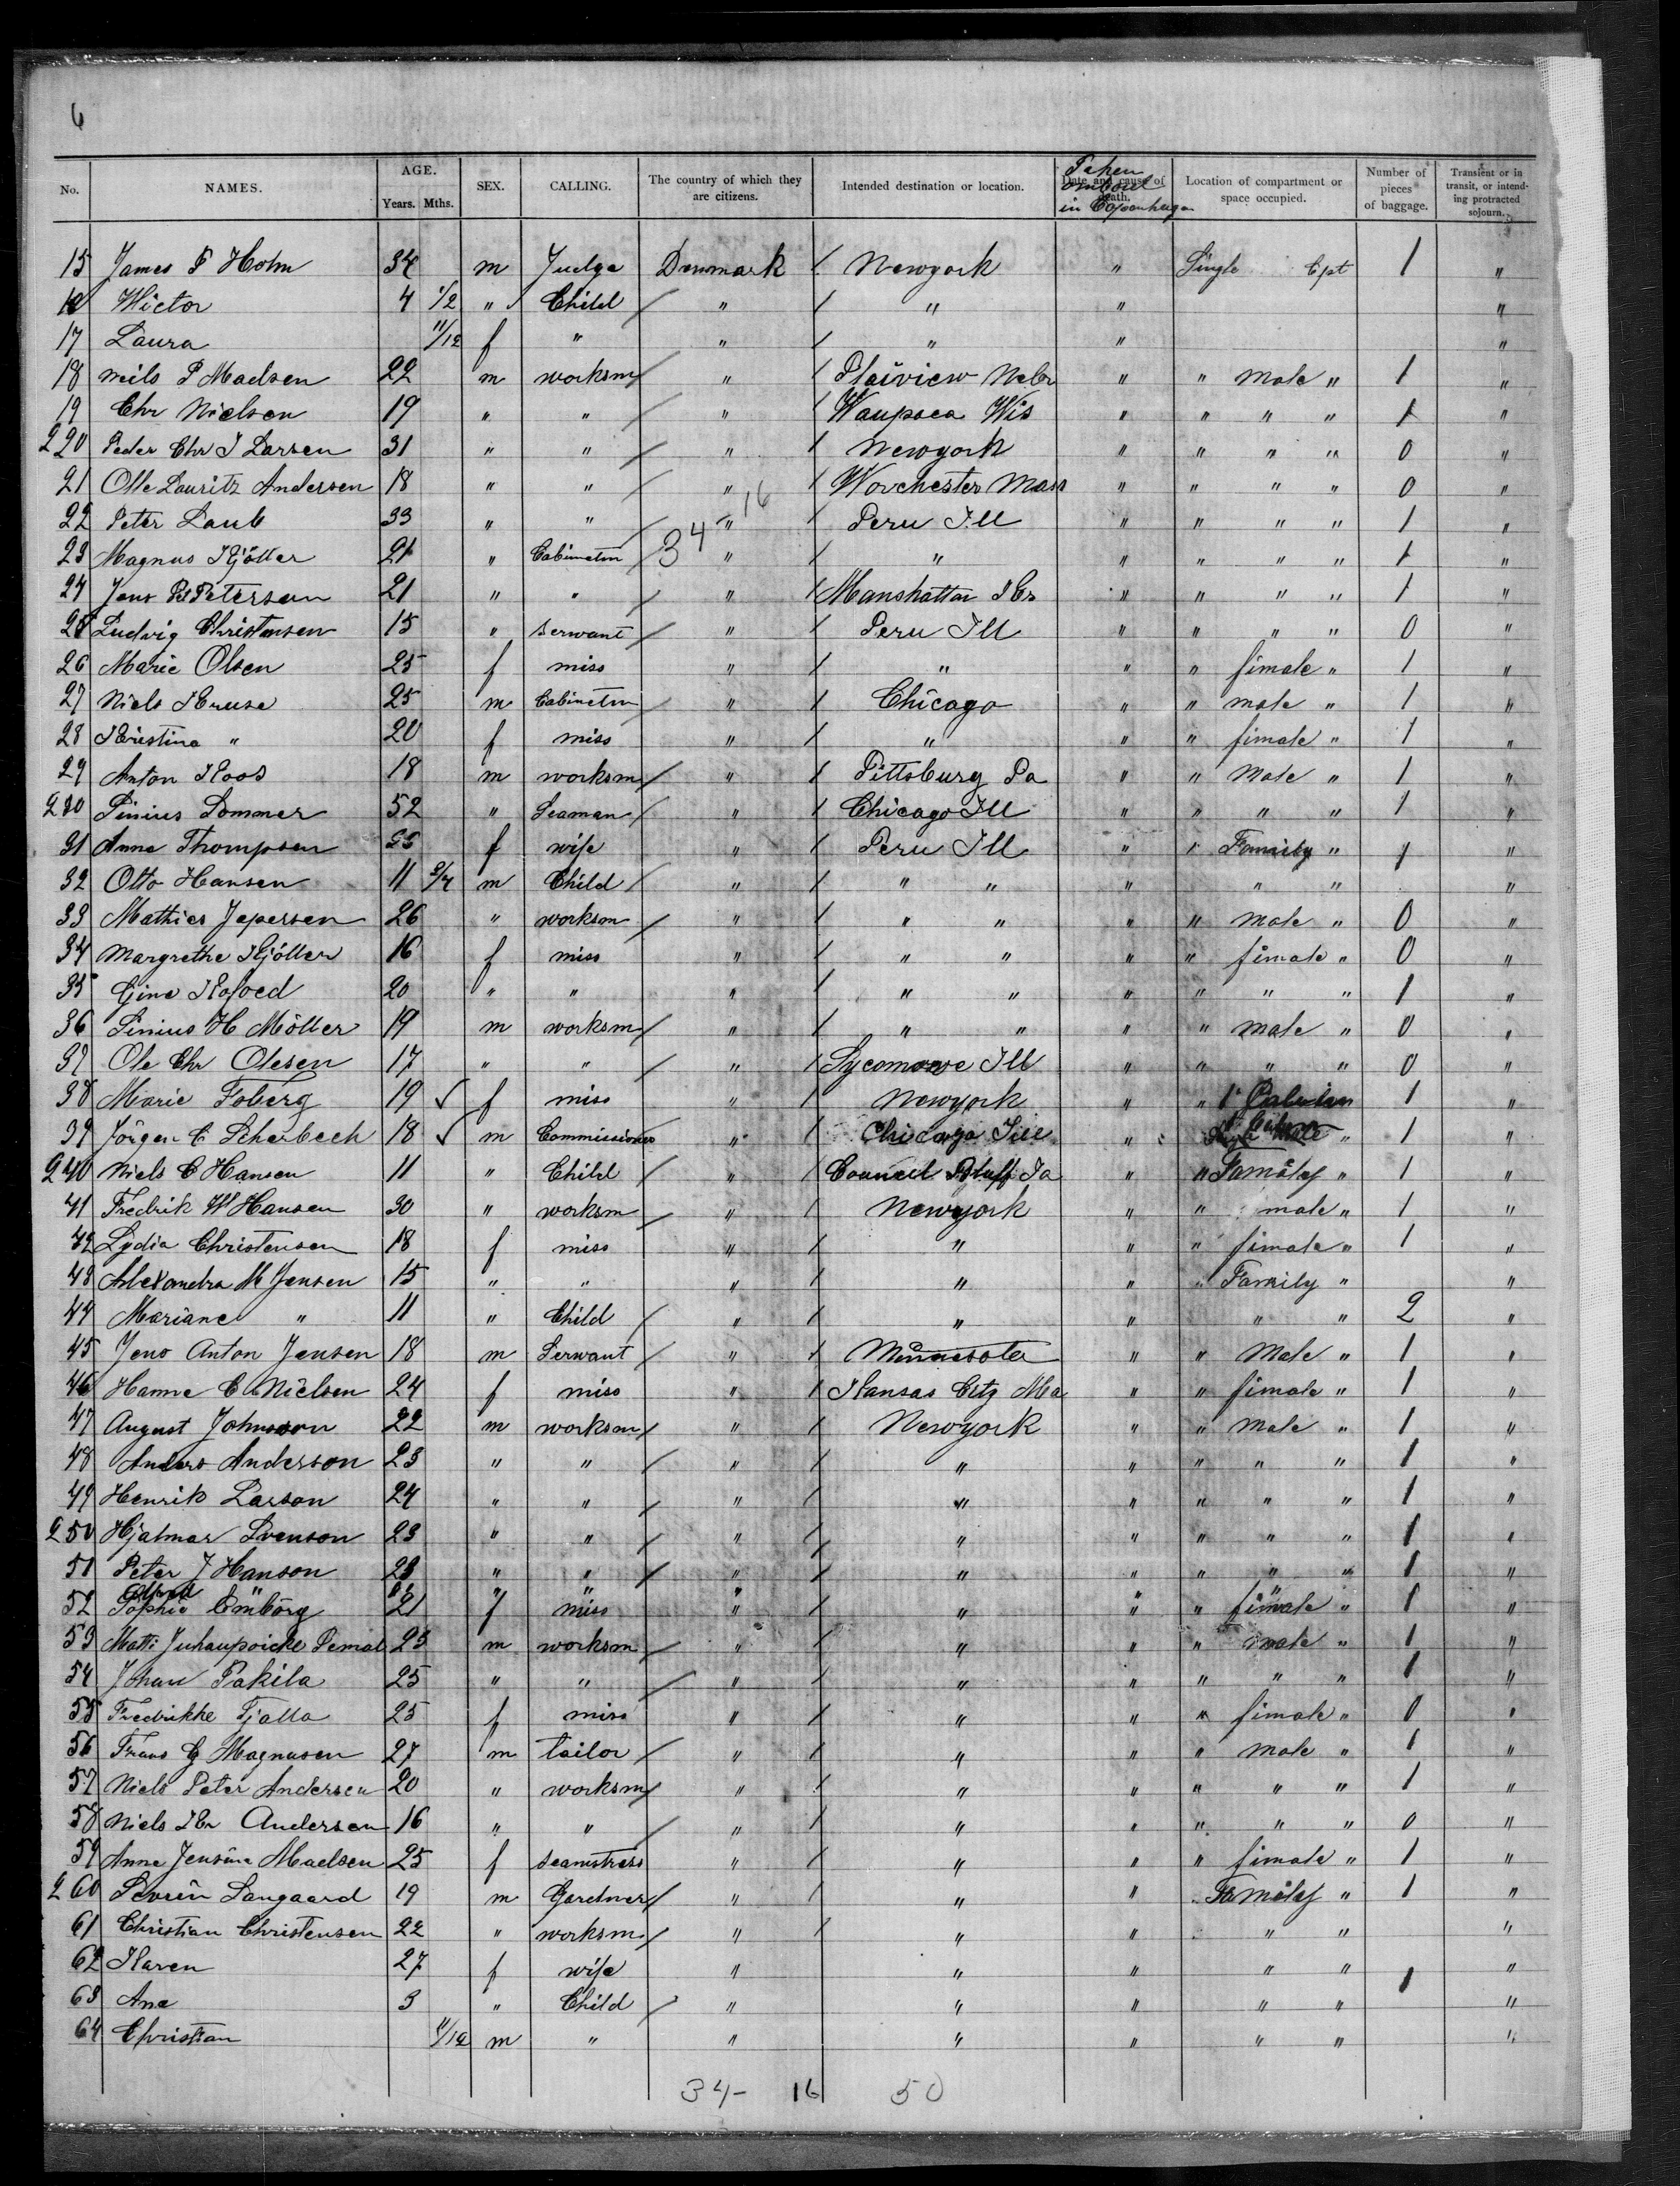 6
No. NAMES. AGE. Years. Mths. SEX. CALLING. The country of which they are citizens. Intended destination or location. Date and cause of death. Taken ombord in Copenhagen Location of compartment or space occupied. Number of pieces of baggage. Transient or in transit, or intending protracted sojourn.
15 James P Holm 34 m Judge Denmark / Newyork " Single Cpt 1 "
16 Wictor 4 1/2 " Child / " / " " "
17 Laura 11/12 f " " / " " "
18 Neils P Madsen 22 m worksm / " / Plaiview Nebr " " male " 1 "
19 Chr Nielsen 19 " " / " / Waupaca Wis " " " " 1 "
220 Peder Chr J Larsen 31 " " / " / Newyork " " " " 0 "
21 Olle Lauritz Andersen 18 " " / " / Worchester Mass " " " " 0 "
22 Peter Laub 33 " " / " / Peru Ill " " " " 1 "
34 16
23 Magnus Kjöller 21 " Cabinetm " / " " " " " 1 "
24 Jens Pet Petersen 21 " " / " / Manshattan " " " " 1 "
25 Ludvig Christensen 15 " servant / " / Peru Ill " " " " 0 "
26 Marie Olsen 25 f miss " / " " " fimale " 1 "
27 Niels Kruse 25 m Cabinetm / " / Chicago " " male " 1 "
28 Kristina " 20 f miss " / " " " fimale " 1 "
29 Anton Koos 18 m worksm / " / Pittsburg Pa " " Male " 1 "
230 Sinius Sommer 52 " Seaman / " / Chicago Ill " " " " 1 "
31 Anna Thompsen f wife " / Peru Ill " " Family " 1 "
32 Otto Hansen 11 3/4 m Child / " / " " " " " "
33 Mathies Jepersen 26 " worksm / " / " " " " male " 0 "
34 Margrethe Kjöller 16 f miss " / " " " " fimale " 0 "
35 Gine Kofoed 20 " " " / " " " " " " 1 "
36 Sinius H Möller 19 m worksm / " / " " " " male " 0 "
37 Ole Chr Olesen 17 " " / " / Sycomowe Ill " " " " 0 "
38 Marie Foberg 19 ✓ f miss " / Newyork " " 1 "
39 Jörgen C Scherbech 18 ✓ m Commissioner " / Chicago Ill " " 1 "
240 Niels C Hansen 11 " Child " / Council Bluff Ia " " Famäly " 1 "
41 Fredrik W Hansen 30 " worksm / " / Newyork " " male " 1 "
42 Lydia Christensen 18 f miss " / " " " fimale " 1 "
43 Alexandra M Jensen 15 " " " / " " " Family " "
44 Mariane " 11 " Child / " / " " " " 2 "
45 Jens Anton Jensen 18 m Serwant / " / Minnesota " " Male " 1 "
46 Hanne C Nielsen 24 f miss " / Kansas City Ma " " fimale " 1 "
47 August Johnsson 22 m worksm / " / Newyork " " male " 1 "
48 Anders Anderson 23 " " / " / " " " " " 1 "
49 Henrik Larson 24 " " / " / " " " " " 1 "
250 Hjalmar Svenson 23 " " / " / " " " " " 1 "
51 Peter J Hanson 23 " " / " / " " " " " 1 "
52 Sophie Emborg 21 f miss " / " " " fimale " 1 "
53 Matti 23 m worksm / " / " " " male " 1 "
54 Johan Pakila 25 " " / " / " " " " " 1 "
55 Fredrikke Fjalla 25 f miss " / " " " fimale " 0 "
56 Frans G Magnusen 27 m tailor / " / " " " male " 1 "
57 Niels Peter Andersen 20 " worksm / " / " " " " " 1 "
58 Niels Kr Andersen 16 " " / " / " " " " " 0 "
59 Anna Jensine Madsen 25 f seamstress " / " " " fimale " 1 "
260 Severin Langaard 19 m Gardner / " / " " Famäly " 1 "
61 Christian Christensen 22 " worksm / " / " " " " "
62 Karen 27 f wife " " " " " 1 "
63 Ane 3 " Child / " " " " " "
64 Christian 11/12 m " " " " " " "
34- 16 50